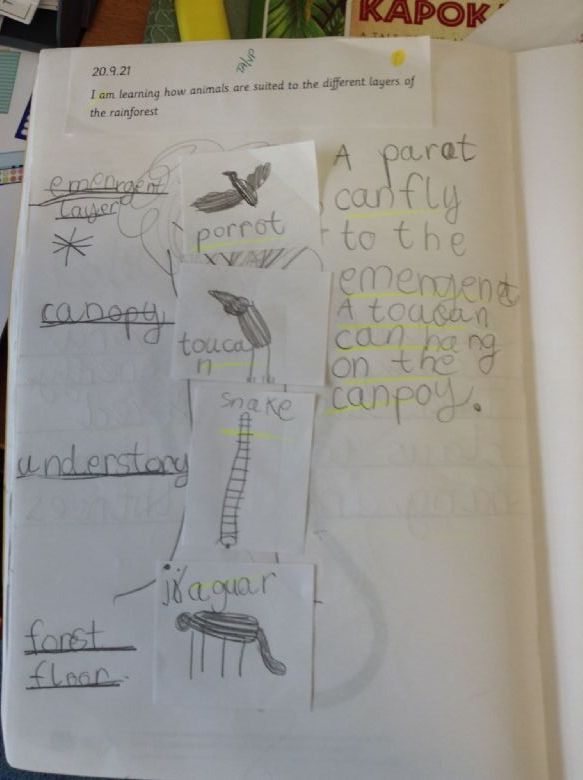 KAPOK
20.9.21
I am learning how animals are suited to the different layers of
the rainforest
emengent
layer
porrot
canopy
touca
n
snake
understory
jaguar
forst
floor
A parat
can fly
to the
emengent
A toucan
can hang
on the
canpoy.